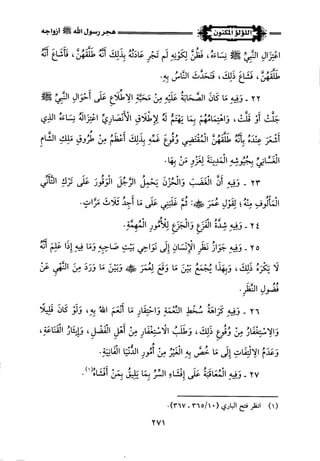 اللؤلؤ المكنون
هجر رسول الله ﷺ أزواجه
اعْتِزَالِ النَّبِيِّ ﷺ نِسَاءَهُ، فَظَنَّ لِكَوْنِهِ لَمْ تَجْرِ عَادَتُهُ بِذَلِكَ أَنَّهُ
طَلَّقَهُنَّ، فَأَشَاعَ أَنَّهُ طَلَّقَهُنَّ، فَشَاعَ ذَلِكَ، فَتَحَدَّثَ النَّاسُ بِهِ.
٢٢ - وَفِيهِ مَا كَانَ الصَّحَابَةُ عَلَيْهِ مِنْ مَحَبَّةِ الِاطِّلَاعِ عَلَى أَحْوَالِ النَّبِيِّ ﷺ
جَلَّتْ أَوْ قَلَّتْ، وَاهْتِمَامُهُمْ بِمَا يَهْتَمُّ لَهُ لِإِطْلَاقِ الْأَنْصَارِيِّ اعْتِزَالَهُ نِسَاءَهُ الَّذِي
أَشْعَرَ عِنْدَهُ بِأَنَّهُ طَلَّقَهُنَّ الْمُقْتَضِي وُقُوعَ غَمِّهِ بِذَلِكَ أَعْظَمَ مِنْ طُرُوقِ مَلِكِ الشَّامِ
الْغَسَّانِيِّ بِجُيُوشِهِ الْمَدِينَةَ لِغَزْوِ مَنْ بِهَا.
٢٣ - وَفِيهِ أَنَّ الْغَضَبَ وَالْحُزْنَ يَحْمِلُ الرَّجُلَ الْوَقُورَ عَلَى تَرْكِ التَّأَنِّي
الْمَأْلُوفِ مِنْهُ؛ لِقَوْلِ عُمَرَ: ثُمَّ غَلَبَنِي مَا أَجِدُ ثَلَاثَ مَرَّاتٍ.
٢٤ - وَفِيهِ شِدَّةُ الْفَزَعِ وَالْجَزَعِ لِلْأُمُورِ الْمُهِمَّةِ.
٢٥ - وَفِيهِ جَوَازُ نَظَرِ الْإِنْسَانِ إِلَى نَوَاحِي بَيْتِ صَاحِبِهِ وَمَا فِيهِ إِذَا عَلِمَ أَنَّهُ
لَا يَكْرَهُ ذَلِكَ، وَبِهَذَا يُجْمَعُ بَيْنَ مَا وَقَعَ لِعُمَرَ وَبَيْنَ مَا وَرَدَ مِنَ النَّهْيِ عَنْ
فُضُولِ النَّظَرِ.
٢٦ - وَفِيهِ كَرَاهَةُ سُخْطِ النِّعْمَةِ وَاحْتِقَارِ مَا أَنْعَمَ اللهُ بِهِ، وَلَوْ كَانَ قَلِيلًا
وَالِاسْتِغْفَارُ مِنْ وُقُوعِ ذَلِكَ، وَطَلَبُ الِاسْتِغْفَارِ مِنْ أَهْلِ الْفَضْلِ، وَإِيثَارُ الْقَنَاعَةِ،
وَعَدَمُ الِالْتِفَاتِ إِلَى مَا خُصَّ بِهِ الْغَيْرُ مِنْ أُمُورِ الدُّنْيَا الْفَانِيَةِ.
٢٧ - وَفِيهِ الْمُعَاقَبَةُ عَلَى إِفْشَاءِ السِّرِّ بِمَا يَلِيقُ بِمَنْ أَفْشَاهُ(١).
(١) انظر فتح الباري (١٠/٣٦٥ - ٣٦٧).
٢٧١